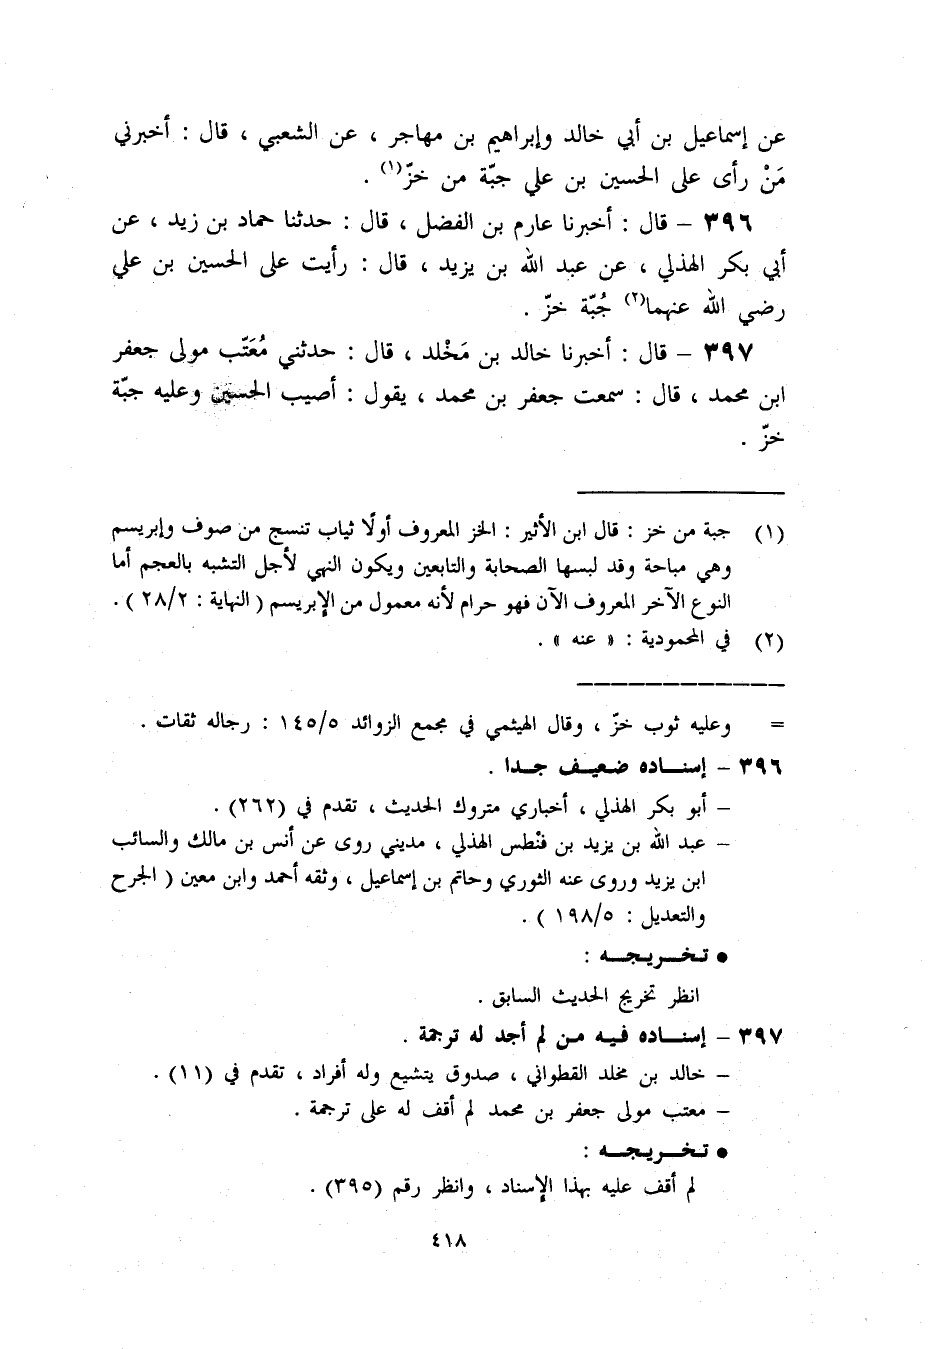 عن إسماعيل بن أبي خالد وإبراهيم بن مهاجر ، عن الشعبي ، قال : أخبرني
مَنْ رأى على الحسين بن علي جبّة من خزّ(١) .
٣٩٦ – قال : أخبرنا عارم بن الفضل ، قال : حدثنا حماد بن زيد ، عن
أبي بكر الهذلي ، عن عبد الله بن يزيد ، قال : رأيت على الحسين بن علي
رضي الله عنهما(٢) جُبّة خزّ .
٣٩٧ – قال : أخبرنا خالد بن مَخْلد ، قال : حدثني مُعَتّب مولى جعفر
ابن محمد ، قال : سمعت جعفر بن محمد ، يقول : أصيب الحسين وعليه جبّة
خزّ .
(١) جبة من خز : قال ابن الأثير : الخز المعروف أولًا ثياب تنسج من صوف وإبريسم
وهي مباحة وقد لبسها الصحابة والتابعين ويكون النهي لأجل التشبه بالعجم أما
النوع الآخر المعروف الآن فهو حرام لأنه معمول من الإبريسم ( النهاية : ٢٨/٢ ) .
(٢) في المحمودية : « عنه » .
= وعليه ثوب خزّ ، وقال الهيثمي في مجمع الزوائد ١٤٥/٥ : رجاله ثقات .
٣٩٦ – إسناده ضعيف جدا .
– أبو بكر الهذلي ، أخباري متروك الحديث ، تقدم في (٢٦٢) .
– عبد الله بن يزيد بن فنْطس الهذلي ، مديني روى عن أنس بن مالك والسائب
ابن يزيد وروى عنه الثوري وحاتم بن إسماعيل ، وثقه أحمد وابن معين ( الجرح
والتعديل : ١٩٨/٥ ) .
● تخريجه :
انظر تخريج الحديث السابق .
٣٩٧ – إسناده فيه من لم أجد له ترجمة .
– خالد بن مخلد القطواني ، صدوق يتشيع وله أفراد ، تقدم في (١١) .
– معتب مولى جعفر بن محمد لم أقف له على ترجمة .
● تخريجه :
لم أقف عليه بهذا الإسناد ، وانظر رقم (٣٩٥) .
٤١٨